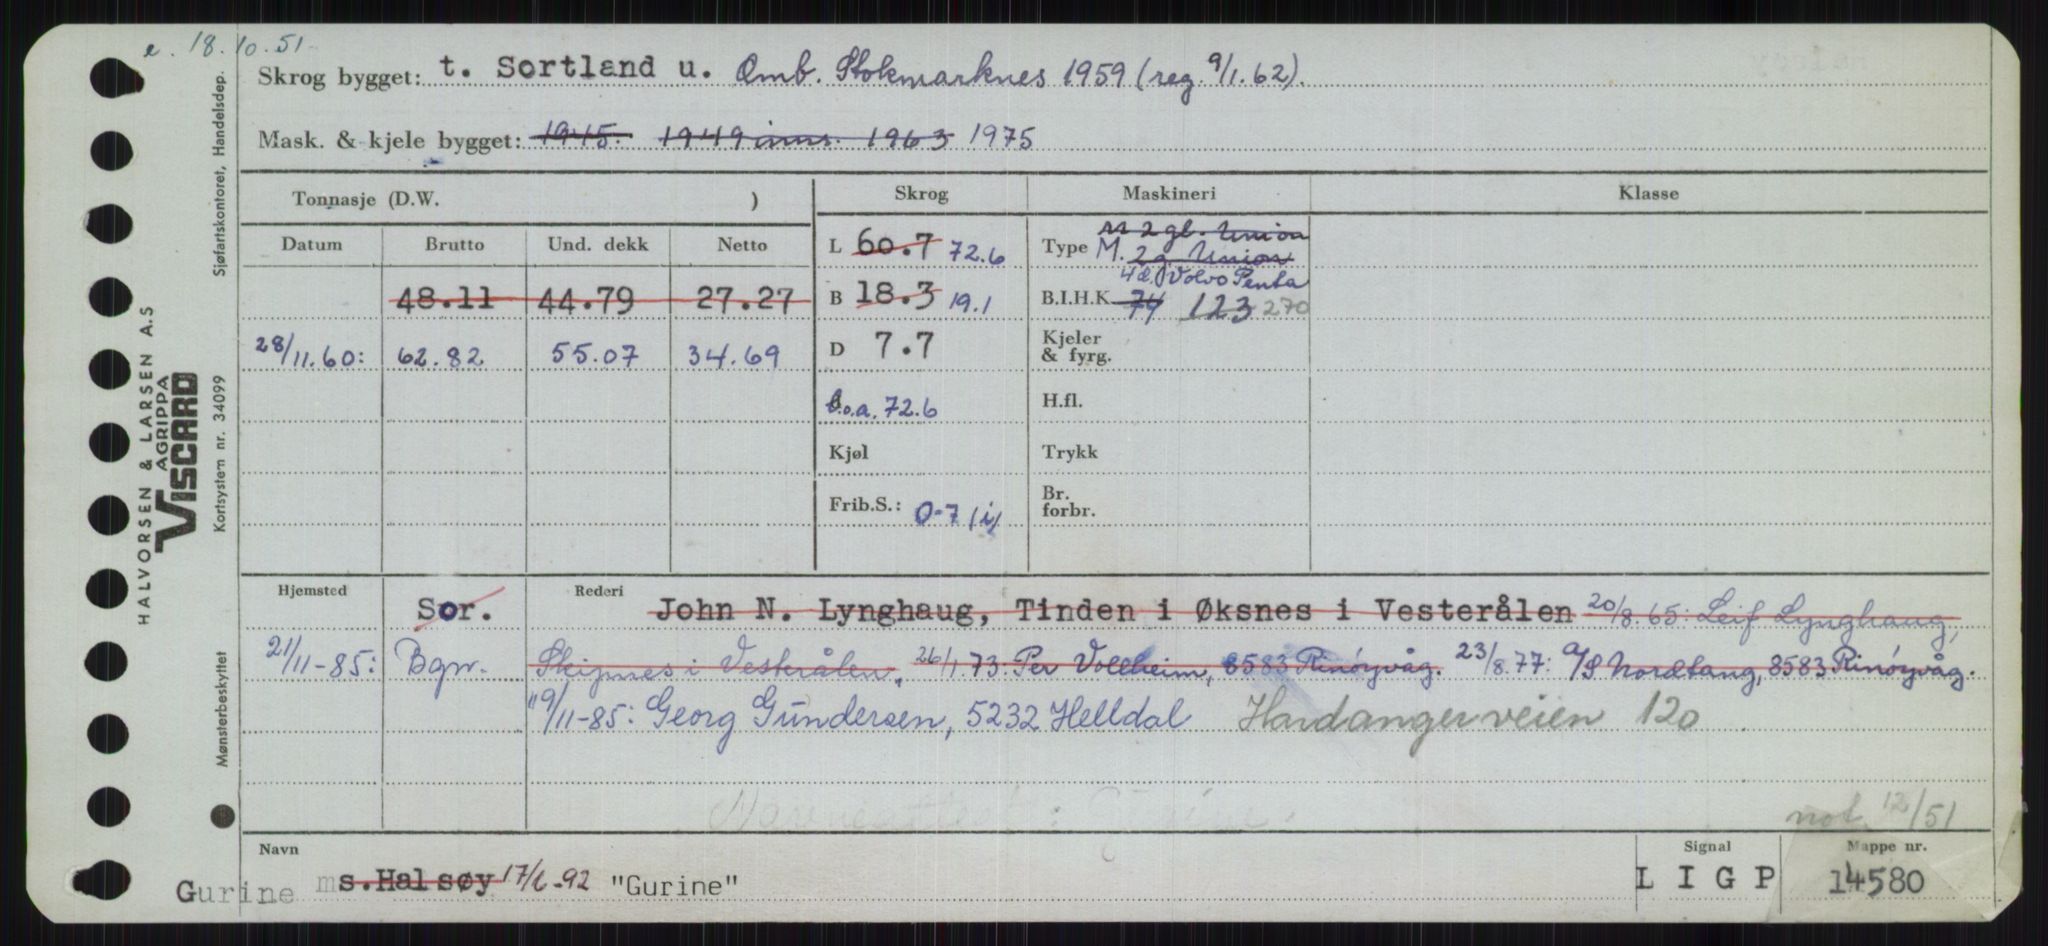 e. 18.10.51
Skrog bygget: t. Sortland u. Omb. Stokmarknes 1959 (reg. 9/1.62).
Mask. & kjele bygget: 1945. 1949 inns. 1963 1975
Tonnasje (D.W. )
Skrog
Maskineri
Klasse
Datum Brutto Und. dekk Netto
L 60.7 72.6
Type M 2 gl. Union
M. 2 g. Union
4 d. Volvo Penta
48.11 44.79 27.27
B 18.3 19.1
B.I.H.K. 74 123 270
28/11.60: 62.82 55.07 34.69
D 7.7
Kjeler
& fyrg.
l.o.a. 72.6
H.fl.
Kjøl
Trykk
Frib.S.: 0-7 (i)
Br.
forbr.
Hjemsted Sor. Rederi John N. Lynghaug, Tinden i Øksnes i Vesterålen 20/8.65: Leif Lynghaug,
21/11-85: Bgn. Skipnes i Vesterålen, 26/1.73: Per Volcheim, 8583 Rinøyvåg. 23/8.77: A/S Nordtang, 8583 Rinøyvåg.
19/11-85: Georg Gundersen, 5232 Helldal Hardangerveien 120
not 12/51
Navn
Gurine ms. Halsøy 17/6-92 "Gurine"
Signal
L I G P
Mappe nr.
14580
HALVORSEN & LARSEN A.S
AGRIPPA
VISCARD
Mønsterbeskyttet Kortsystem nr. 34099 Sjøfartskontoret, Handelsdep.